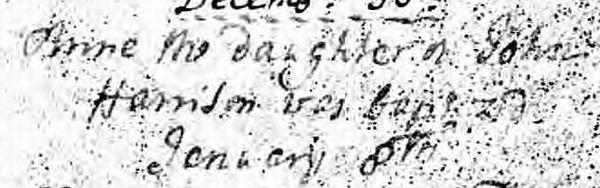 Decemb. 30.
Anne the daughter of John
Harrison was bapt.zd
January 8th